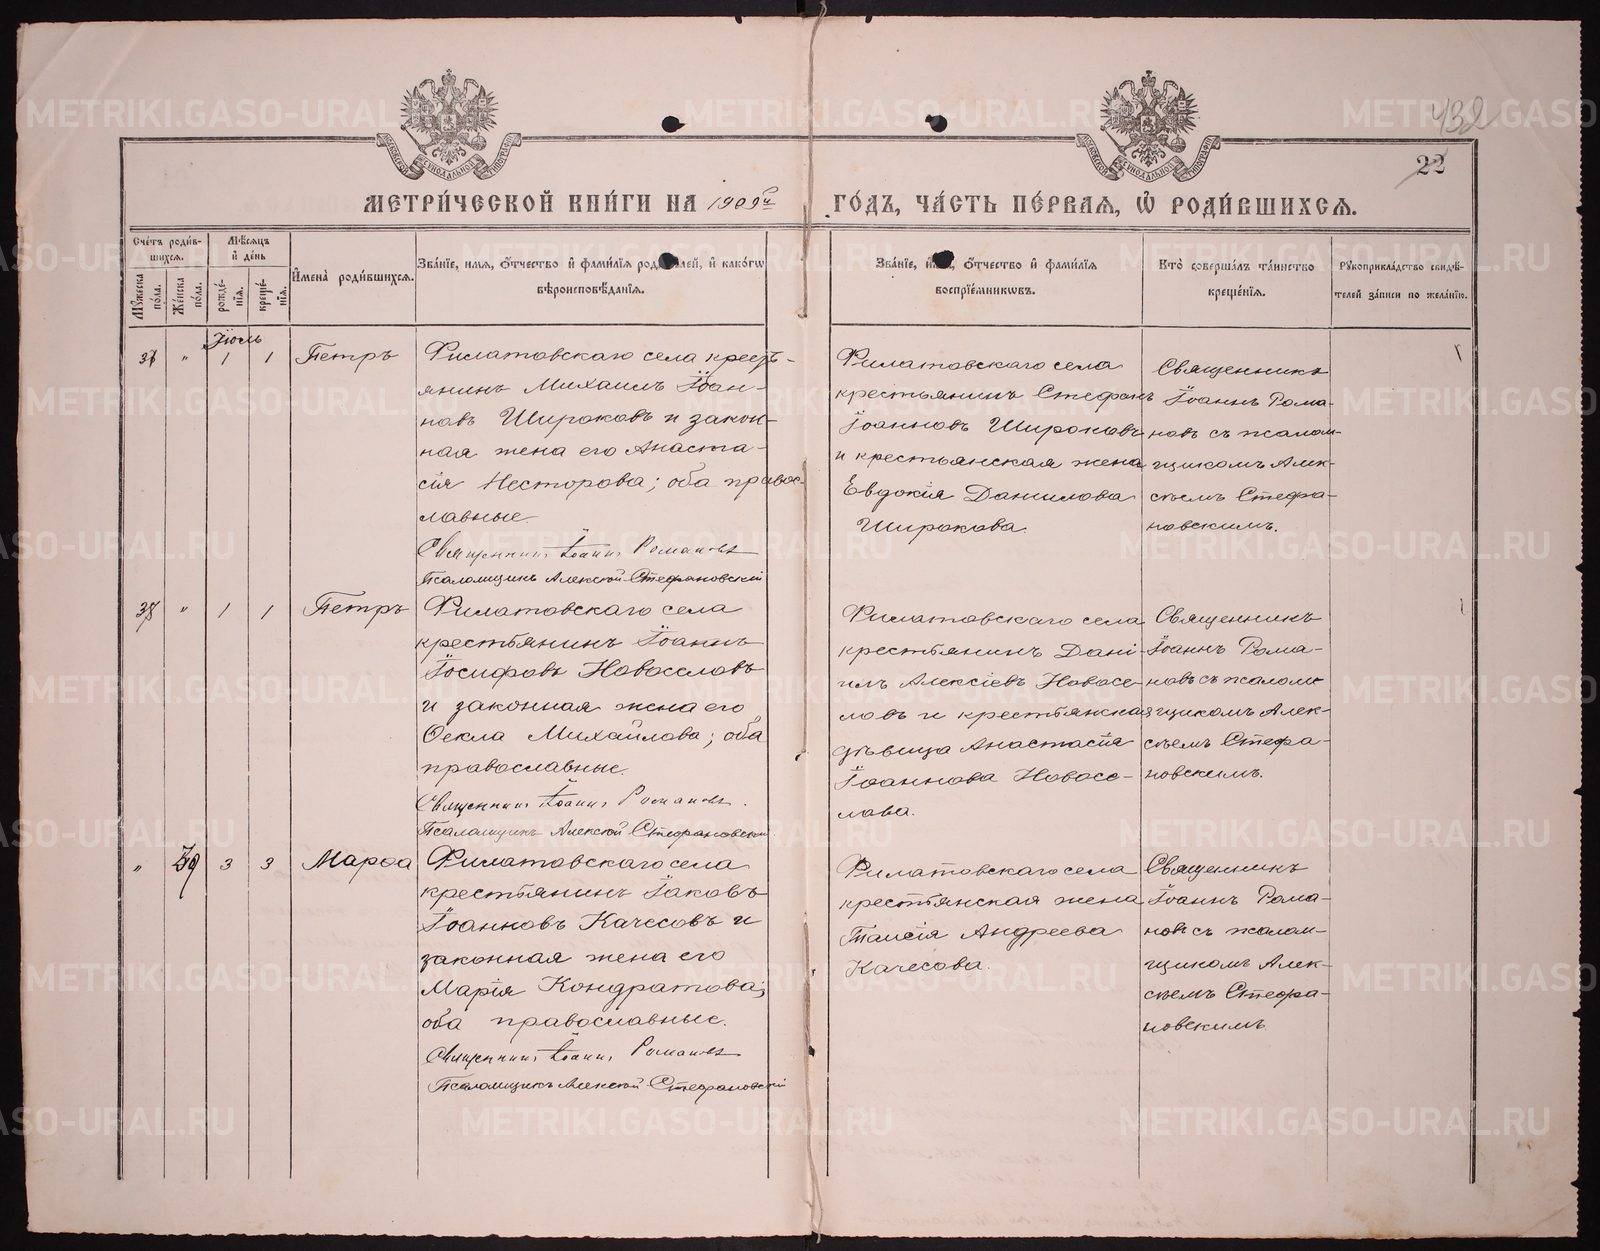 432
22
МЕТРИ́ЧЕСКОЙ КНИ́ГИ НА 1909й ГО́ДЪ, ЧА́СТЬ ПЕ́РВАЯ, Ѡ РОДИ́ВШИХСЯ.
Сче́тъ роди́в-
шихся.
Мѣ́сяцъ
и҆ де́нь
Мꙋ́жеска
по́ла.
Же́нска
по́ла.
рожде́-
нїя.
креще́-
нїя.
И҆мена̀ роди́вшихся.
Зва́нїе, и҆мя, ѻ҆́тчество и҆ фами́лїя роди́телей, и҆ како́гѡ
вѣроисповѣ́данїя.
Зва́нїе, и҆мя, ѻ҆́тчество и҆ фами́лїя
воспрїе́мникѡвъ.
Кто̀ соверша́лъ та́инство
креще́нїя.
Рꙋкоприкла́дство свидѣ́-
телей за́писи по жела́нїю.
Іюль
" 1 1 Петръ
Филатовскаго села кресть-
янинъ Михаилъ Іоан-
новъ Широковъ и закон-
ная жена его Анаста-
сія Несторова; оба правос-
лавные.
Священникъ Іоаннъ Романовъ
Псаломщикъ Алексѣй Стефановскій
Филатовскаго села
крестьянинъ Стефанъ
Іоанновъ Широковъ
и крестьянская жена
Евдокія Данилова
Широкова.
Священникъ
Іоаннъ Рома-
новъ съ псалом-
щикомъ Алек-
сѣемъ Стефа-
новскимъ.
38 " 1 1 Петръ
Филатовскаго села
крестьянинъ Іоаннъ
Іосифовъ Новоселовъ
и законная жена его
Ѳекла Михайлова; оба
православные.
Священникъ Іоаннъ Романовъ.
Псаломщикъ Алексѣй Стефановскій
Филатовскаго села
крестьянинъ Дані-
илъ Алексіевъ Новосе-
ловъ и крестьянская
дѣвица Анастасія
Іоаннова Новосе-
лова.
Священникъ
Іоаннъ Рома-
новъ съ псалом-
щикомъ Алек-
сѣемъ Стефа-
новскимъ.
" 3 3 Марѳа
Филатовскаго села
крестьянинъ Іаковъ
Іоанновъ Качесовъ и
законная жена его
Марія Кондратова;
оба православные.
Священникъ Іоаннъ Романовъ
Псаломщикъ Алексѣй Стефановскій
Филатовскаго села
крестьянская жена
Таисія Андреева
Качесова.
Священникъ
Іоаннъ Рома-
новъ съ псалом-
щикомъ Алек-
сѣемъ Стефа-
новскимъ
METRIKI.GASO-URAL.RU